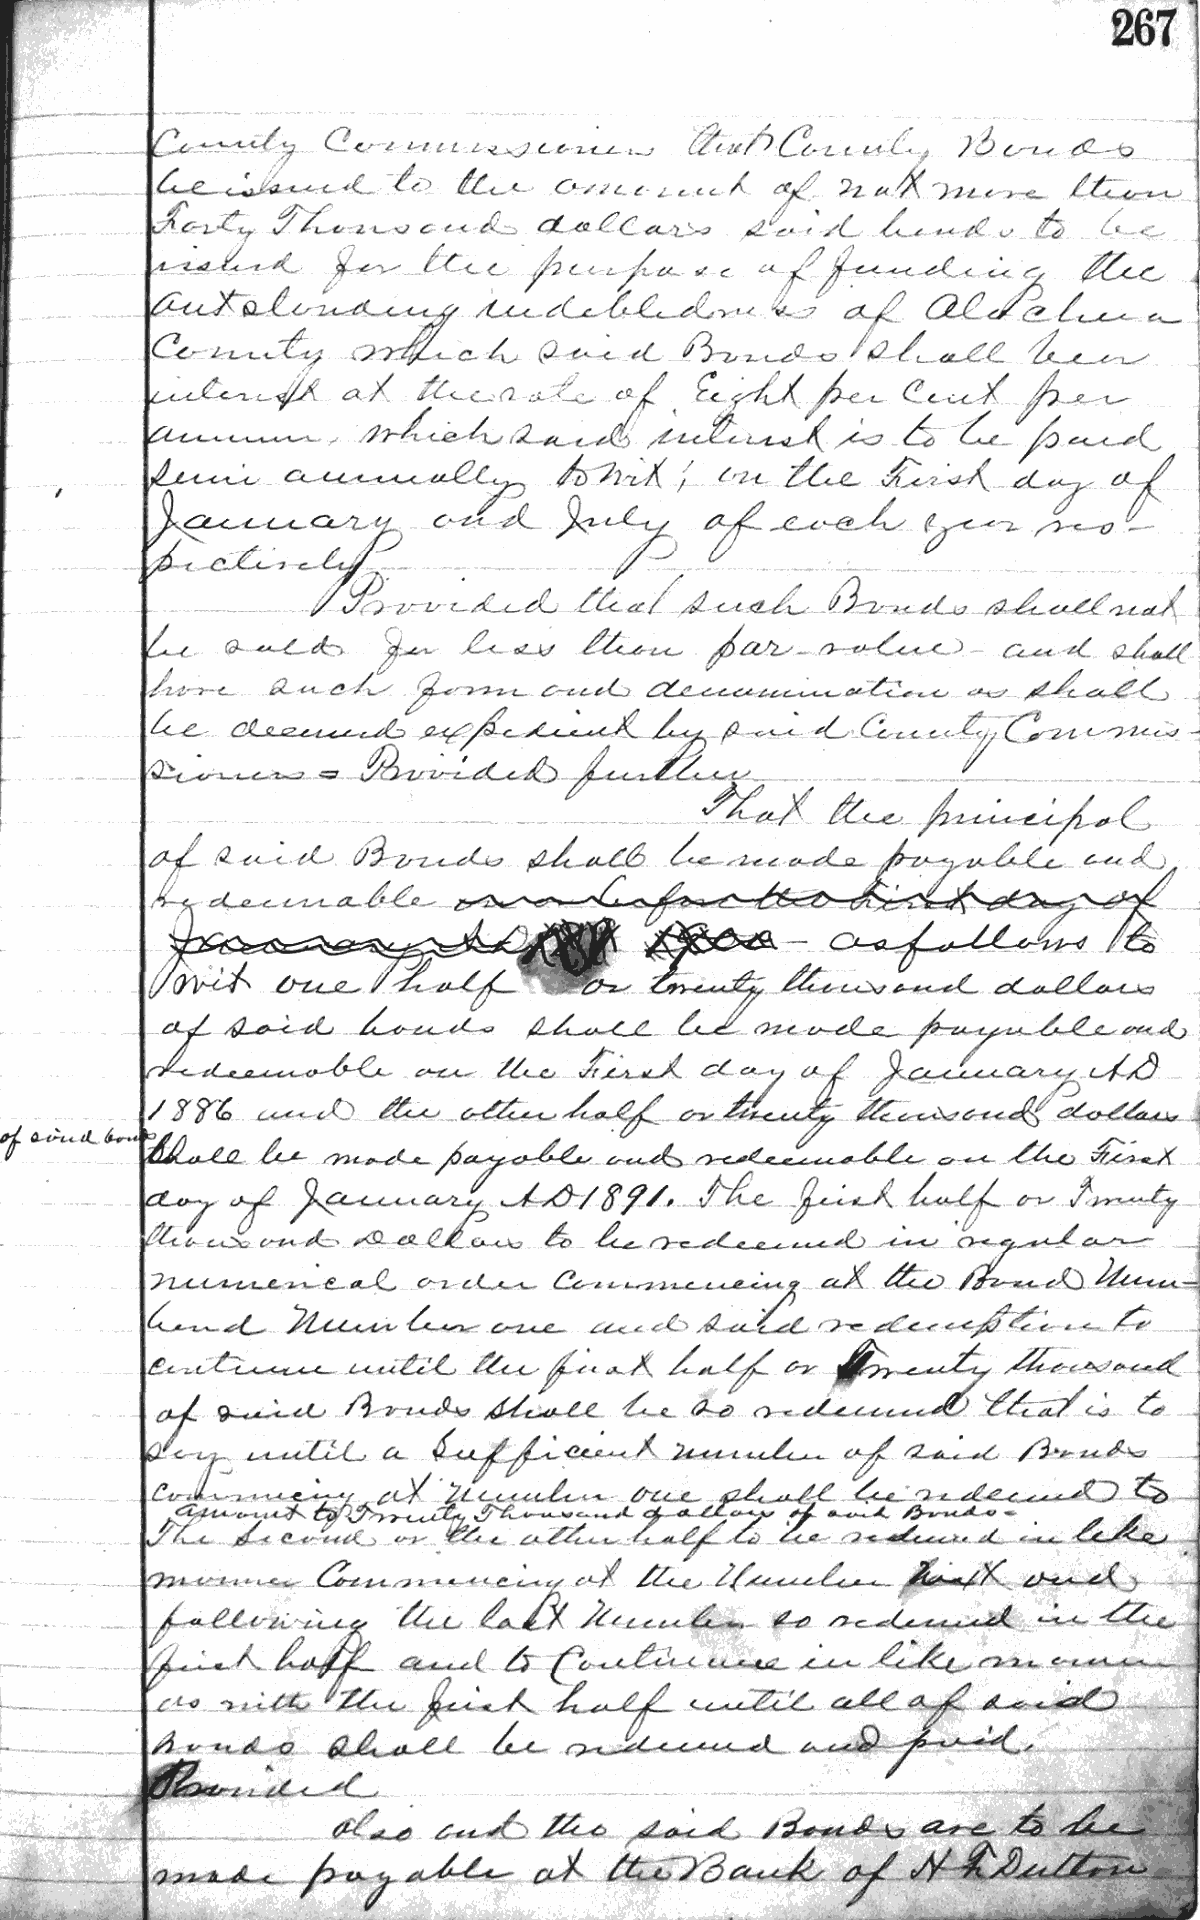 267
County Commissioners that County Bonds
be issued to the amount of not more than
Forty Thousand dollars said bonds to be
issued for the purpose of funding the
outstanding indebtedness of Alachua
County which said Bonds shall bear
interest at the rate of Eight per Cent per
annum, which said interest is to be paid
semi annually to wit; on the First day of
January and July of each year res-
pectively
Provided that such Bonds shall not
be sold for less than par-value - and shall
have such form and denomination as shall
be deemed expedient by said County Commis-
sioners = Provided further
That the principal
of said Bonds shall be made payable and
redeemable on or before the First day of
January AD 1900 - as follows to
wit one half or twenty thousand dollars
of said bonds shall be made payable and
redeemable on the First day of January AD
1886 and the other half or twenty thousand dollars
of said bonds
shall be made payable and redeemable on the First
day of January AD 1891. The first half or Twenty
thousand Dollars to be redeemed in regular
numerical order commencing at the Bond Num-
berd Number one and said redemption to
continue until the first half or Twenty thousand
of said Bonds shall be so redeemed that is to
say until a Sufficient number of said Bonds
commencing at Number one shall be redeemed to
amount to Twenty Thousand dollars of said Bonds =
The Second or the other half to be redeemed in like
manner Commencing at the Number next and
following the last Number so redeemed in the
first half and to Continue in like manner
as with the first half until all of said
Bonds shall be redeemed and paid.
Provided
also and the said Bonds are to be
made payable at the Bank of H F Dutton